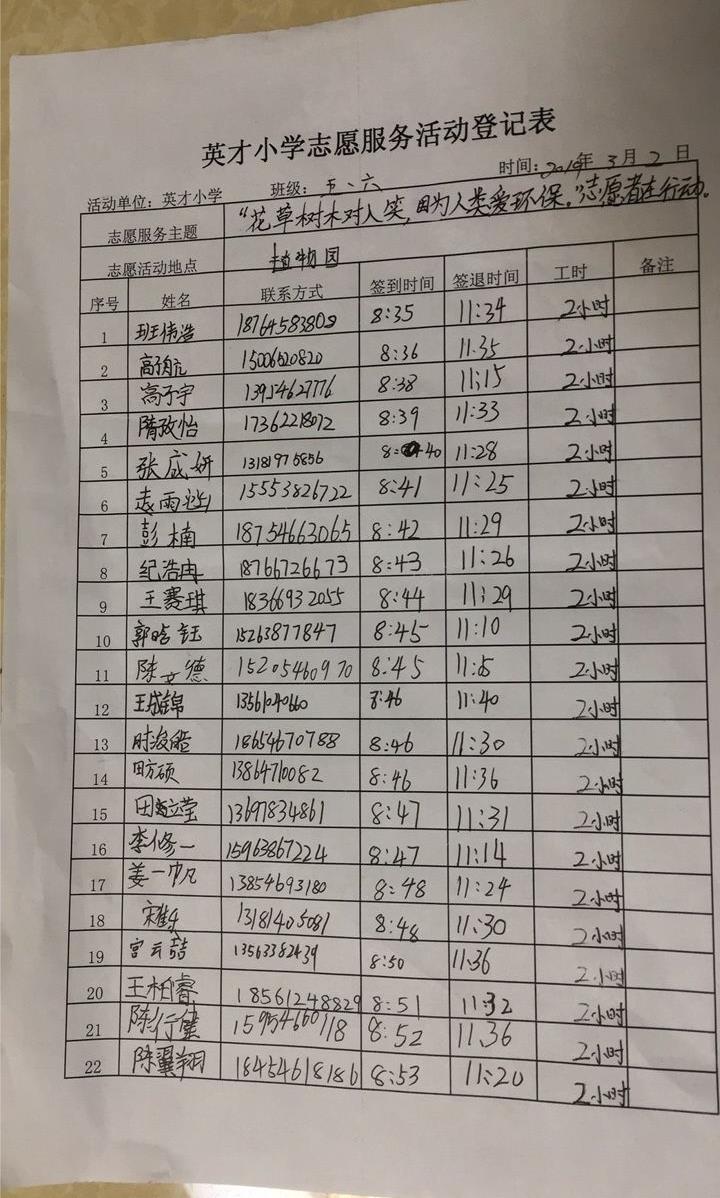 英才小学志愿服务活动登记表
时间：2019年 3月 2日
活动单位：英才小学 班级：五、六
志愿服务主题 “花草树木对人笑，因为人类爱环保。”志愿者在行动。
志愿活动地点 植物园
序号 姓名 联系方式 签到时间 签退时间 工时 备注
1 班伟浩 18764583808 8:35 11:34 2小时
2 高子航 15006520820 8:36 11:35 2小时
3 高子宇 13954627776 8:38 11:15 2小时
4 隋孜怡 17362218072 8:39 11:33 2小时
5 张成妍 13181975856 8:40 11:28 2小时
6 袁雨 15553826722 8:41 11:25 2小时
7 彭楠 18754663065 8:42 11:29 2小时
8 纪浩冉 18766726673 8:43 11:26 2小时
9 王赛琪 18366932055 8:44 11:29 2小时
10 郭晗钰 15263877847 8:45 11:10 2小时
11 陈文德 15205460970 8:45 2小时
12 王成锦 13561040660 8:46 11:40 2小时
13 时浚皓 18654670788 8:46 11:30 2小时
14 田方硕 13864710082 8:46 11:36 2小时
15 田 13697834861 8:47 11:31 2小时
16 李修一 15963867224 8:47 11:14 2小时
17 姜一帆 13854693180 8:48 11:24 2小时
18 宋 13181405081 8:48 11:30 2小时
19 宫云喆 13563382439 8:50 11:36 2小时
20 王柏睿 18561248829 8:51 11:32 2小时
21 陈行健 15954660118 8:52 11:36 2小时
22 陈翼翔 18454618186 8:53 11:20 2小时